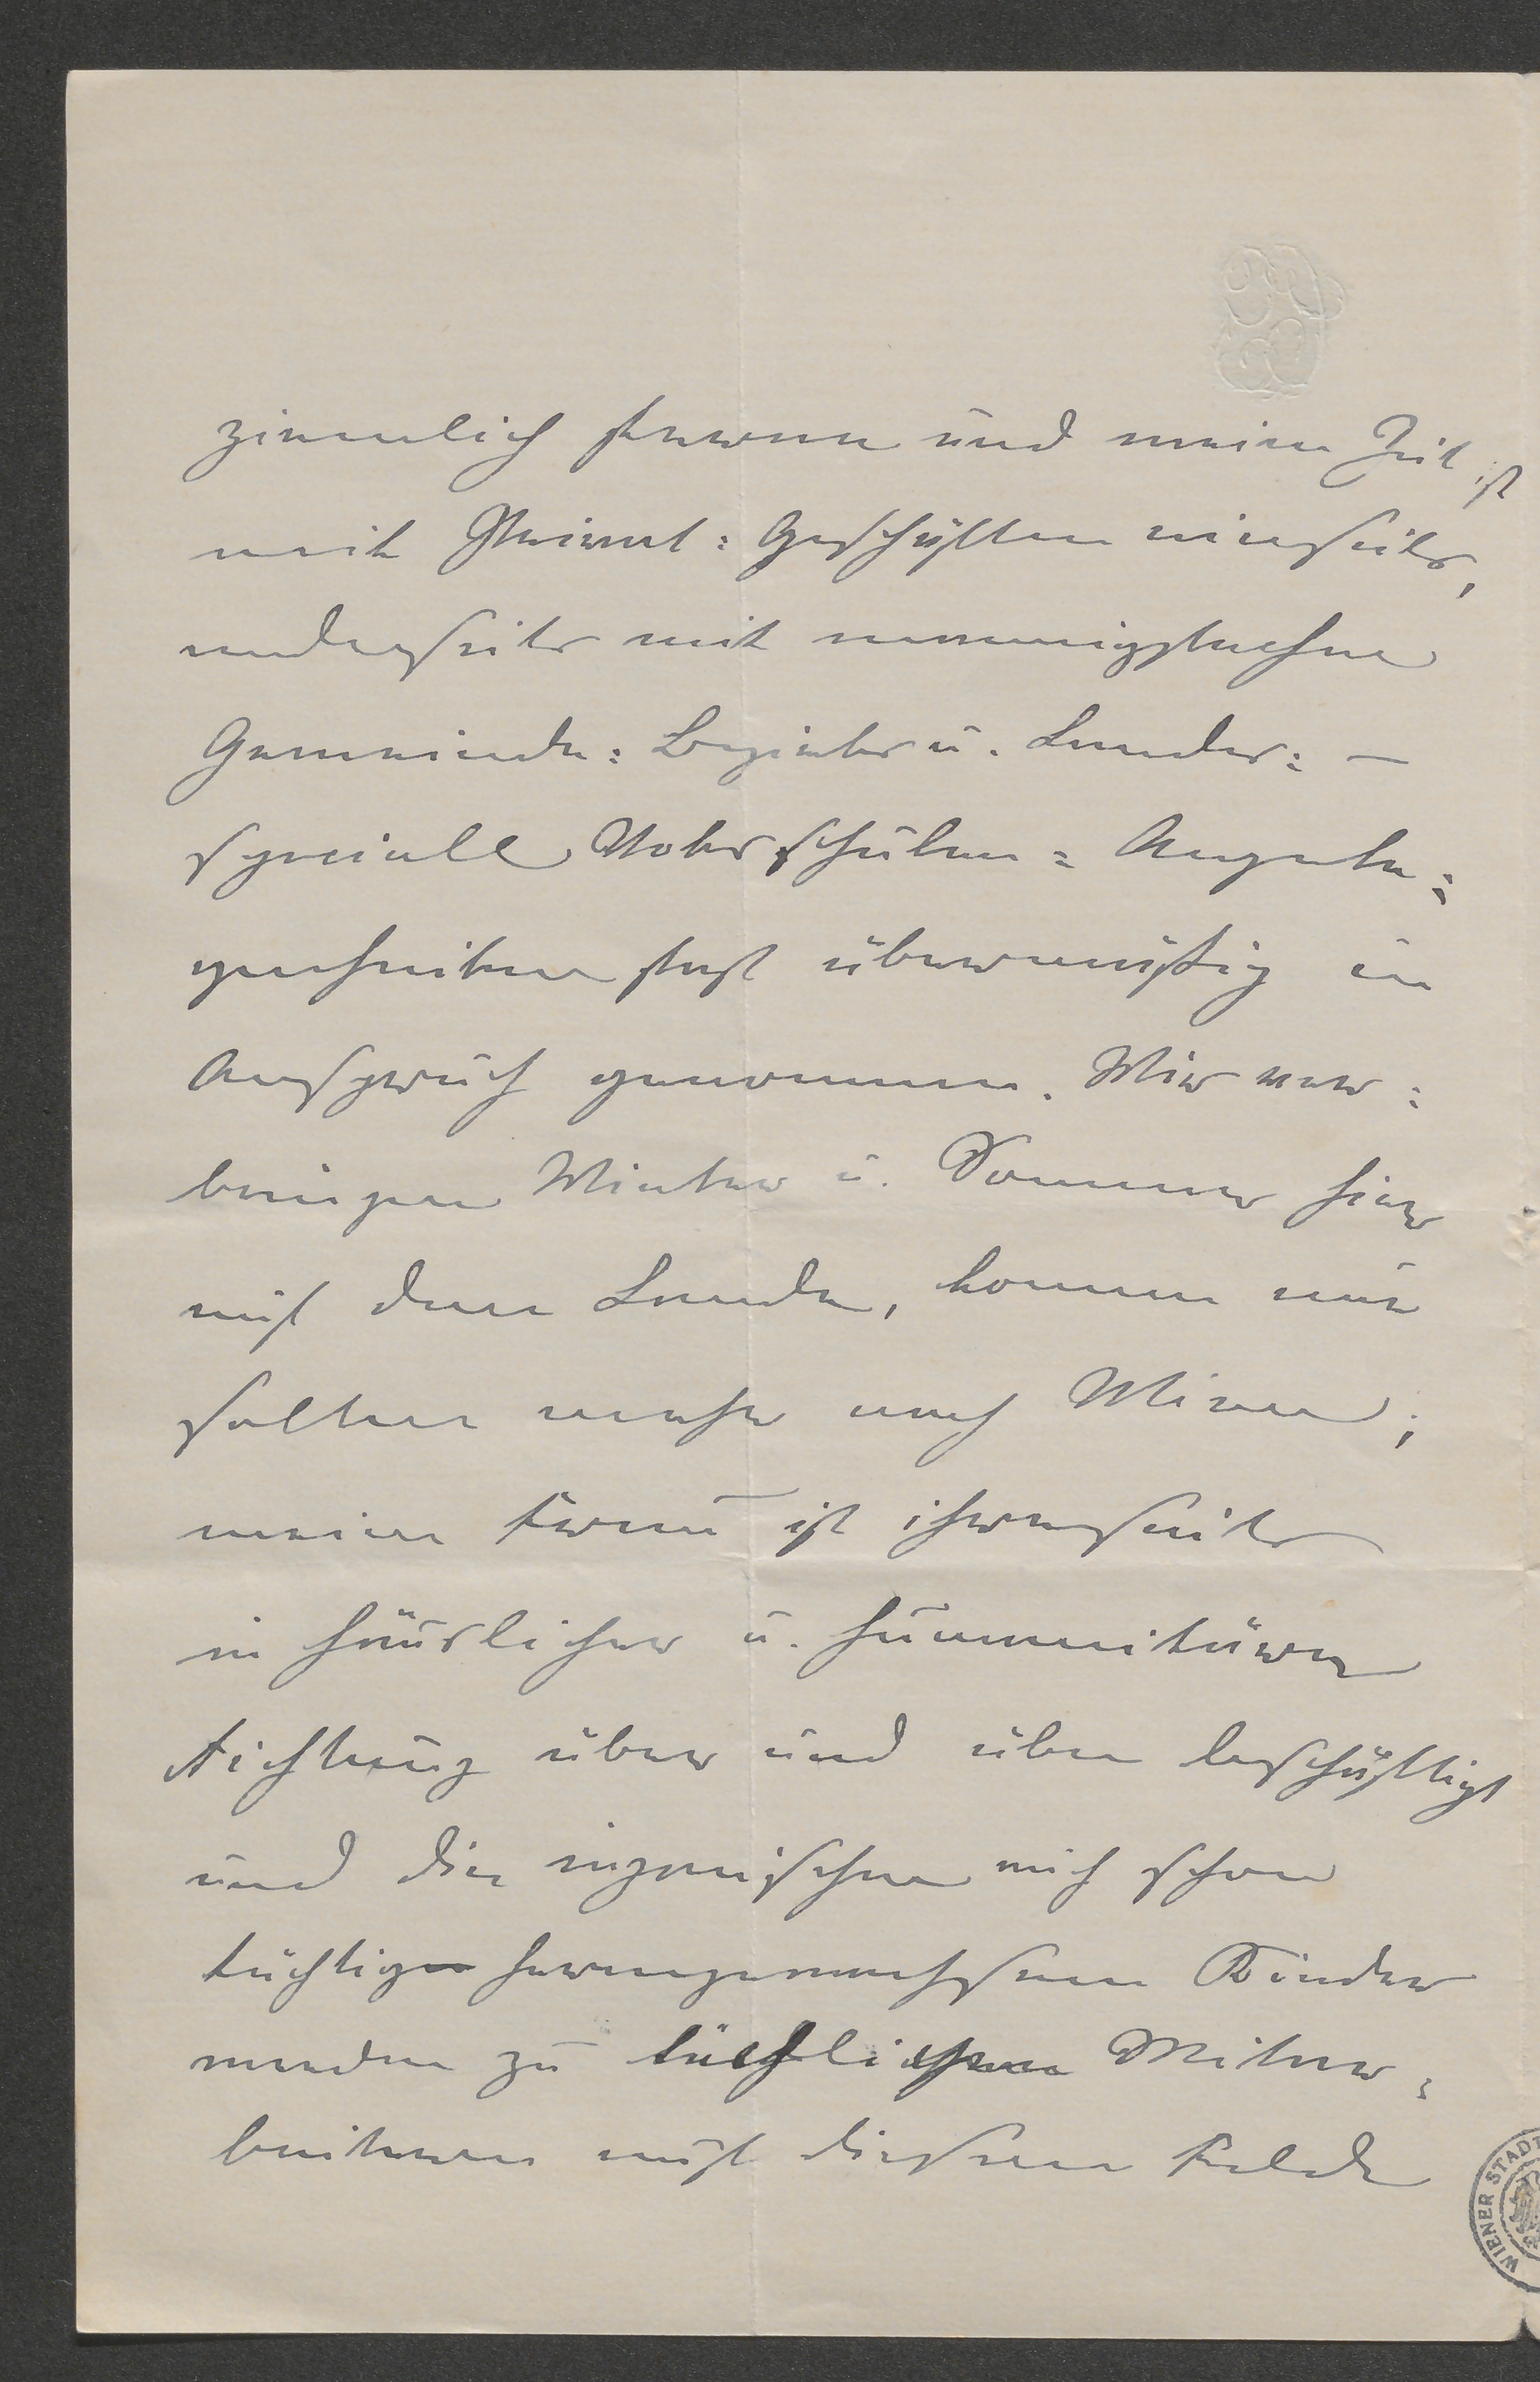 ziemlich ferne und meine Zeit ist
mit Privat= Geschäften einerseits,
anderseits mit mannigfachen
Gemeinde= Bezirks u. Landes= —
speciell Volksschulen= Angele=
genheiten fast übermäßig in
Anspruch genommen. Wir ver=
bringen Winter u. Sommer hier
auf dem Lande, komme nur
selten mehr nach Wien;
meine Frau ist ihrerseits
in häuslicher u. humanitärer
Richtung über und über beschäftigt
und die inzwischen auch schon
tüchtig herangewachsenen Kinder
werden zu Mitar=
beitern auf diesem Felde
WIENER STADT